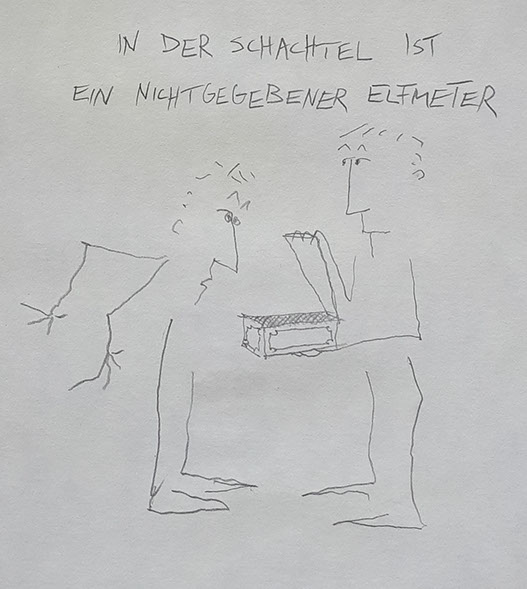 IN DER SCHACHTEL IST
EIN NICHTGEGEBENER ELFMETER